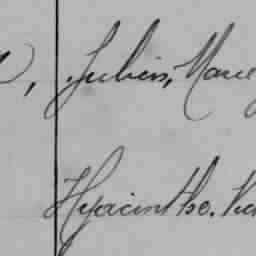 Julien, Marie
Hyacinthe.